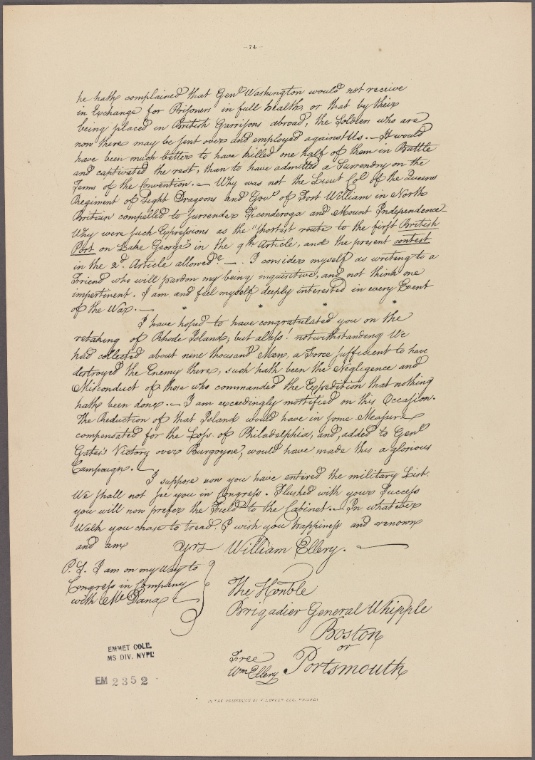 - 74 -
he hath complained that Genl. Washington would not receive
in Exchange for Prisoners in full health, or that by their
being placed in British Garrisons abroad, the Soldiers who are
now there may be sent over and employed against Us.— It would
have been much better to have killed one half of them in Battle
and captivated the rest, than to have admitted a Surrendry on the
Terms of the Convention.— Why was not the Lieut Col of the Queens
Regiment of Light Dragoons and Govr. of Fort William in North
Britain compelled to surrender Ticonderoga and Mount Independence
Why were such Expressions as the shortest route to the first British
Post on Lake George in the 9th Article, and the present contest
in the 2d. Article allowed —. I consider myself as writing to a
Friend who will pardon my being inquisitive, and not think me
impertinent. I am and feel myself deeply interested in every Event
of the War.—
I have hoped to have congratulated you on the
retaking of Rhode Island, but alass! notwithstanding We
had collected about nine thousand Men, a Force sufficient to have
destroyed the Enemy there, such hath been the Negligence and
Misconduct of those who commanded the Expedition that nothing
hath been done.— I am exceedingly mortified on this Occasion.
The Reduction of that Island would have in some Measure
compensated for the Loss of Philadelphia, and, added to Genl
Gates' Victory over Burgoyne, would have made this a glorious
Campaign.
I suppose now you have entered the military List
We shall not see you in Congress. Flushed with your Success
you will now prefer the Field to the Cabinet.— In whatever
Walk you chuse to tread I wish you Happiness and renown
and am Yrs William Ellery.—
P. S. I am on my way to
Congress in Company
with Mr Dana
The Honble
Brigadier General Whipple
Boston
or
Portsmouth
Free
Wm Ellery
EMMET COLL.
MS DIV. NYPL
EM 2352